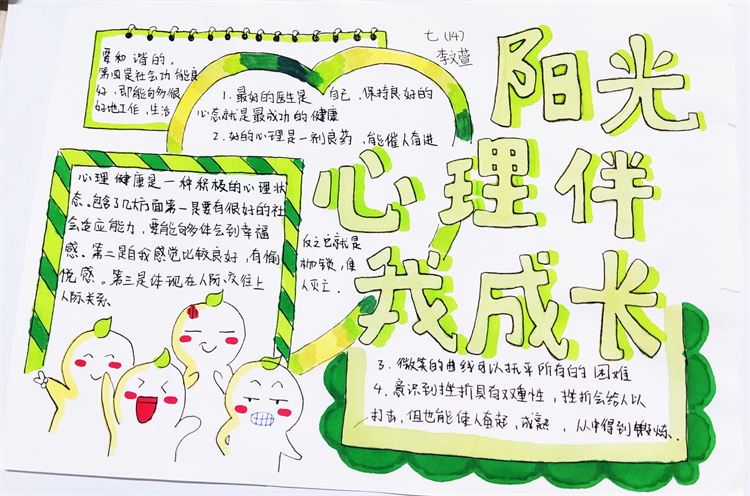 七(14)
李文萱
阳光
心理伴
我成长
要和谐的,
第四是社会功能良
好,即能够多很
好地工作,生活
1. 最好的医生是自己,保持良好的
心态就是最成功的健康
2. 好的心理是一剂良药,能催人奋进
反之它就是
枷锁,使
人灭亡.
心理健康是一种积极的心理状
态。包含了几大方面第一是要有很好的社
会适应能力,要能够体会到幸福
感。第二是自我感觉比较良好,有愉
悦感。第三是体现在人际交往上
人际关系
3. 微笑的曲线可以抚平所有的困难
4. 意识到挫折具有双重性,挫折会给人以
打击,但也能使人奋起,成熟,从中得到锻炼.